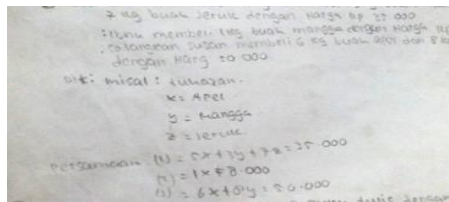 2 kg buah Jeruk dengan Harga Rp 25 000
: Ibunu membeli 1 kg buah mangga dengan Harga Rp
sedangkan Susan membeli 6 kg buah apel dan 8
dengan Harg 50 000
misal :
x = Apel
y = Mangga
z = Jeruk
Persamaan (1) = 5x + 3y + 2z = 25.000
(2) = 1x 8.000
(3) = 6x + 8y = 50.000
dengan